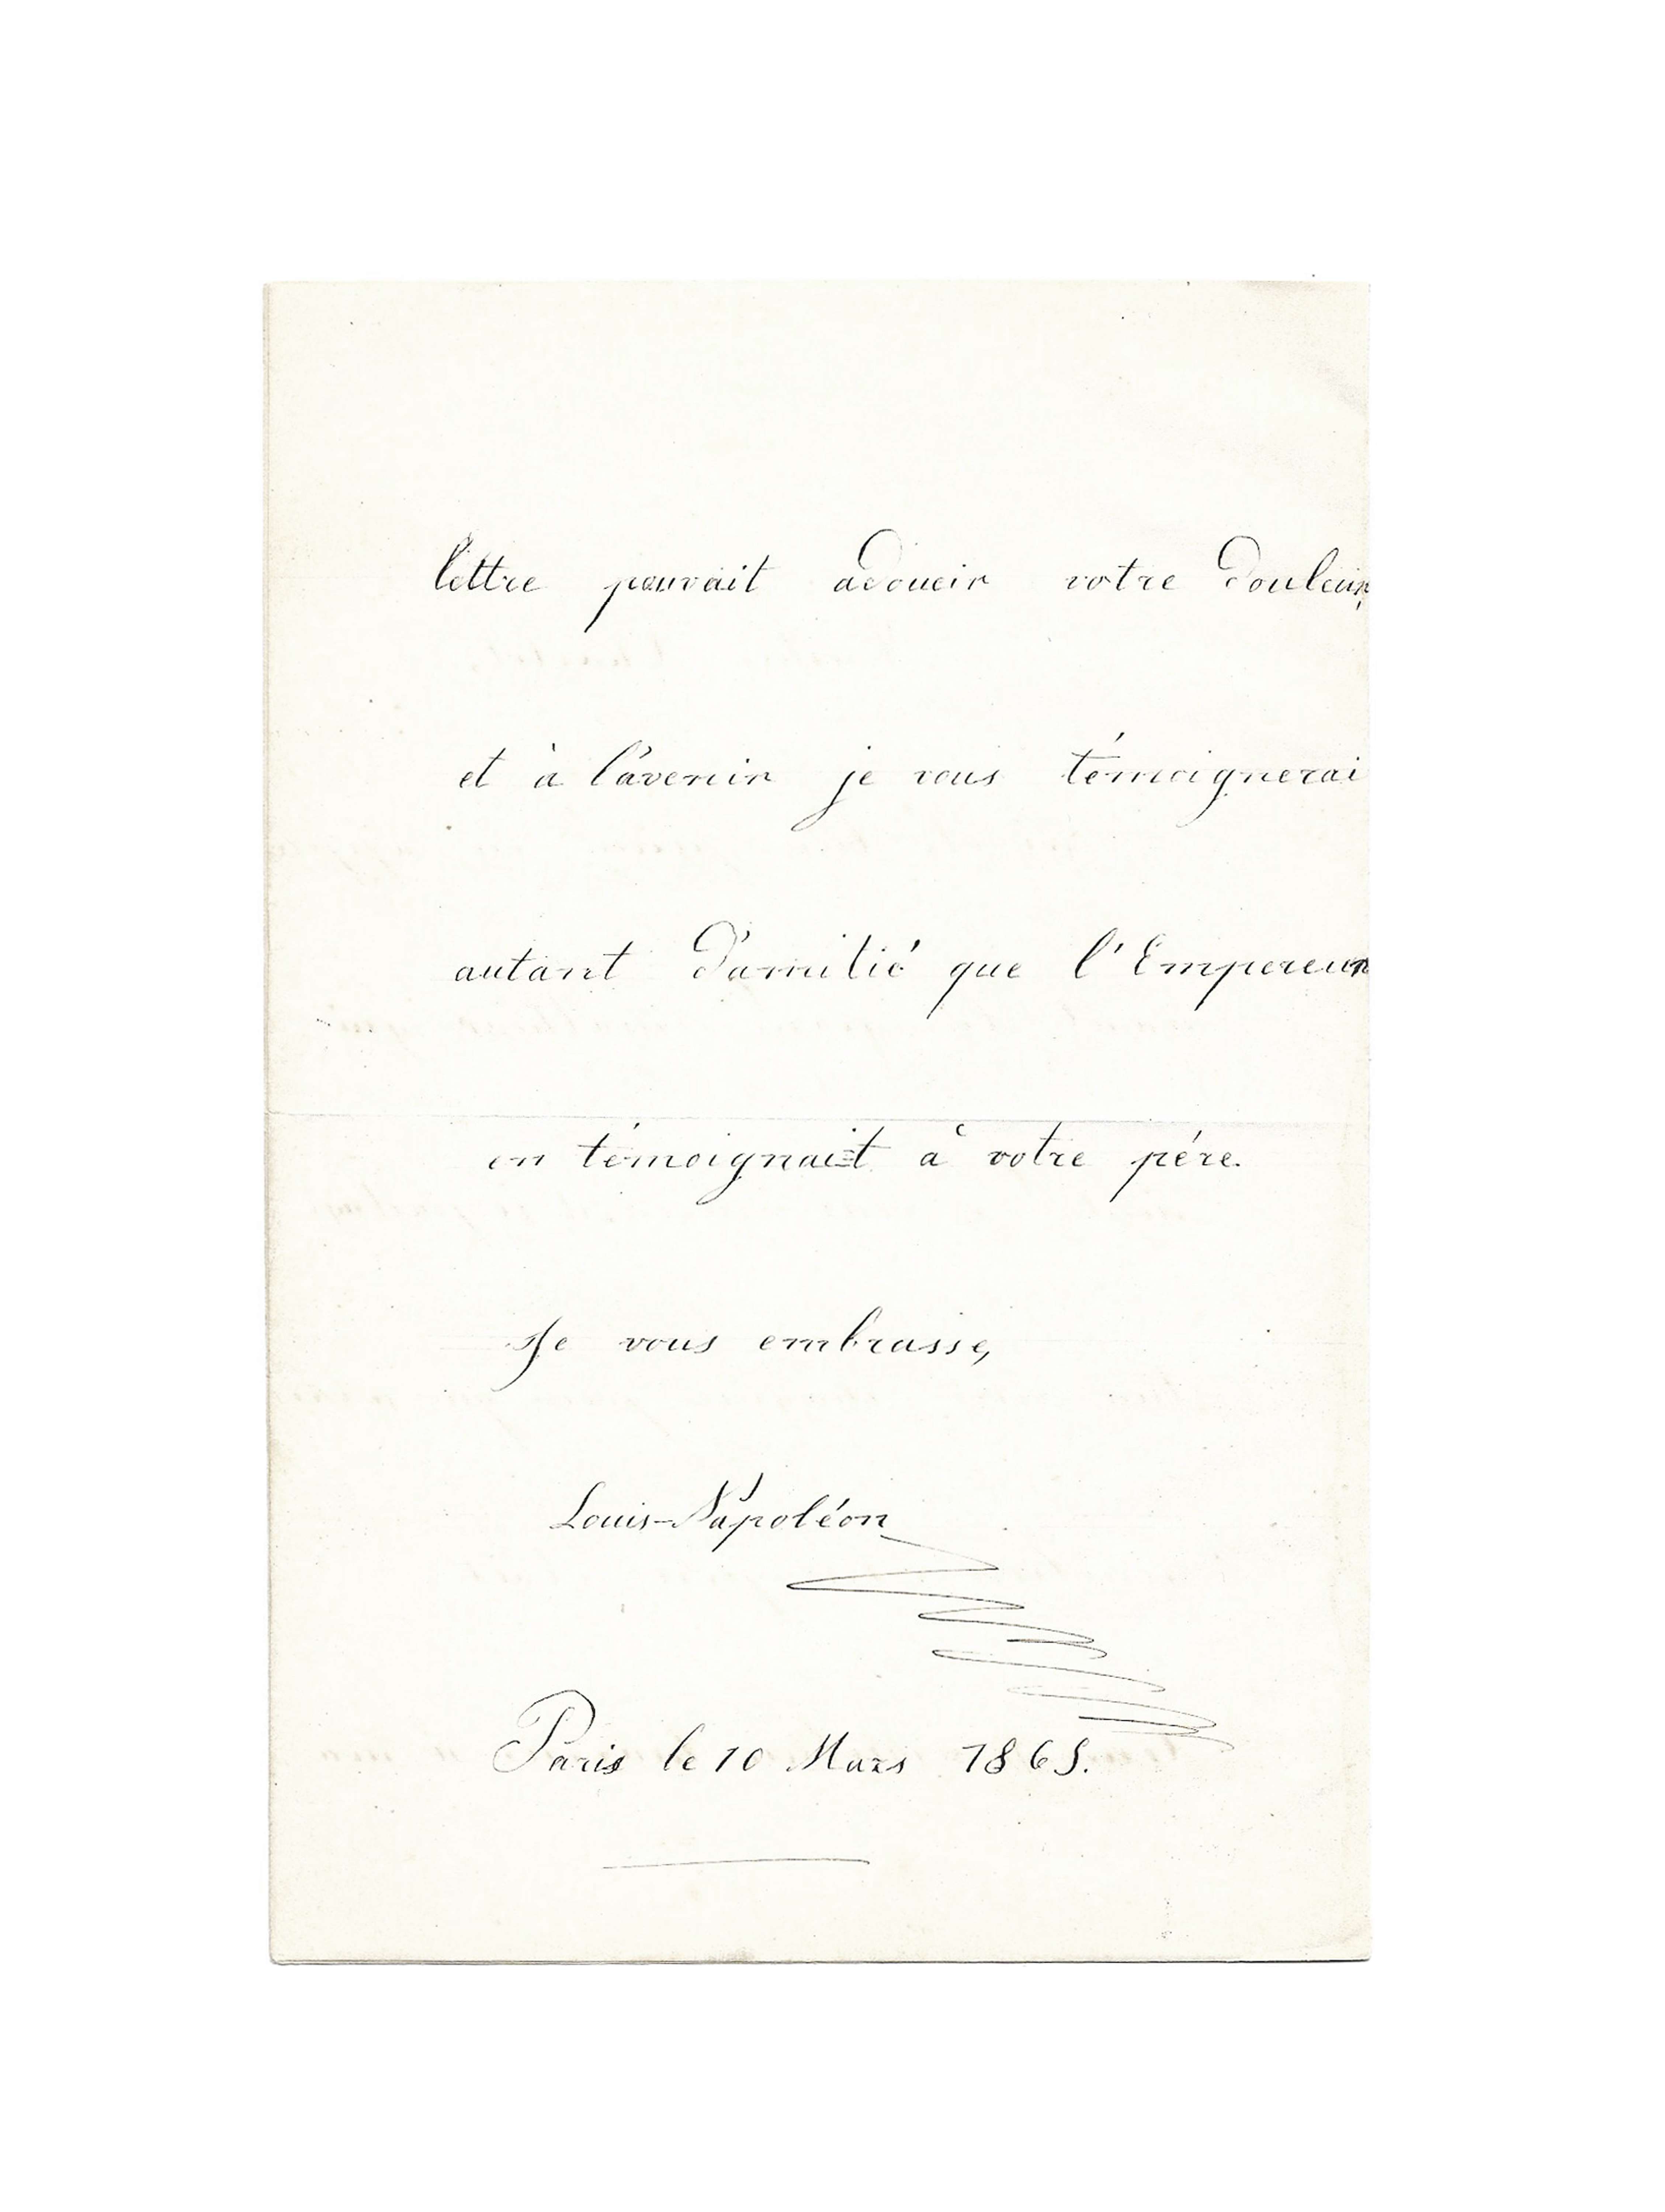 lettre pouvait adoucir votre douleur,
et à l'avenir je vous témoignerai
autant d'amitié que l'Empereur
en témoignait à votre pére.
Je vous embrasse,
Louis-Napoléon
Paris le 10 Mars 1865.